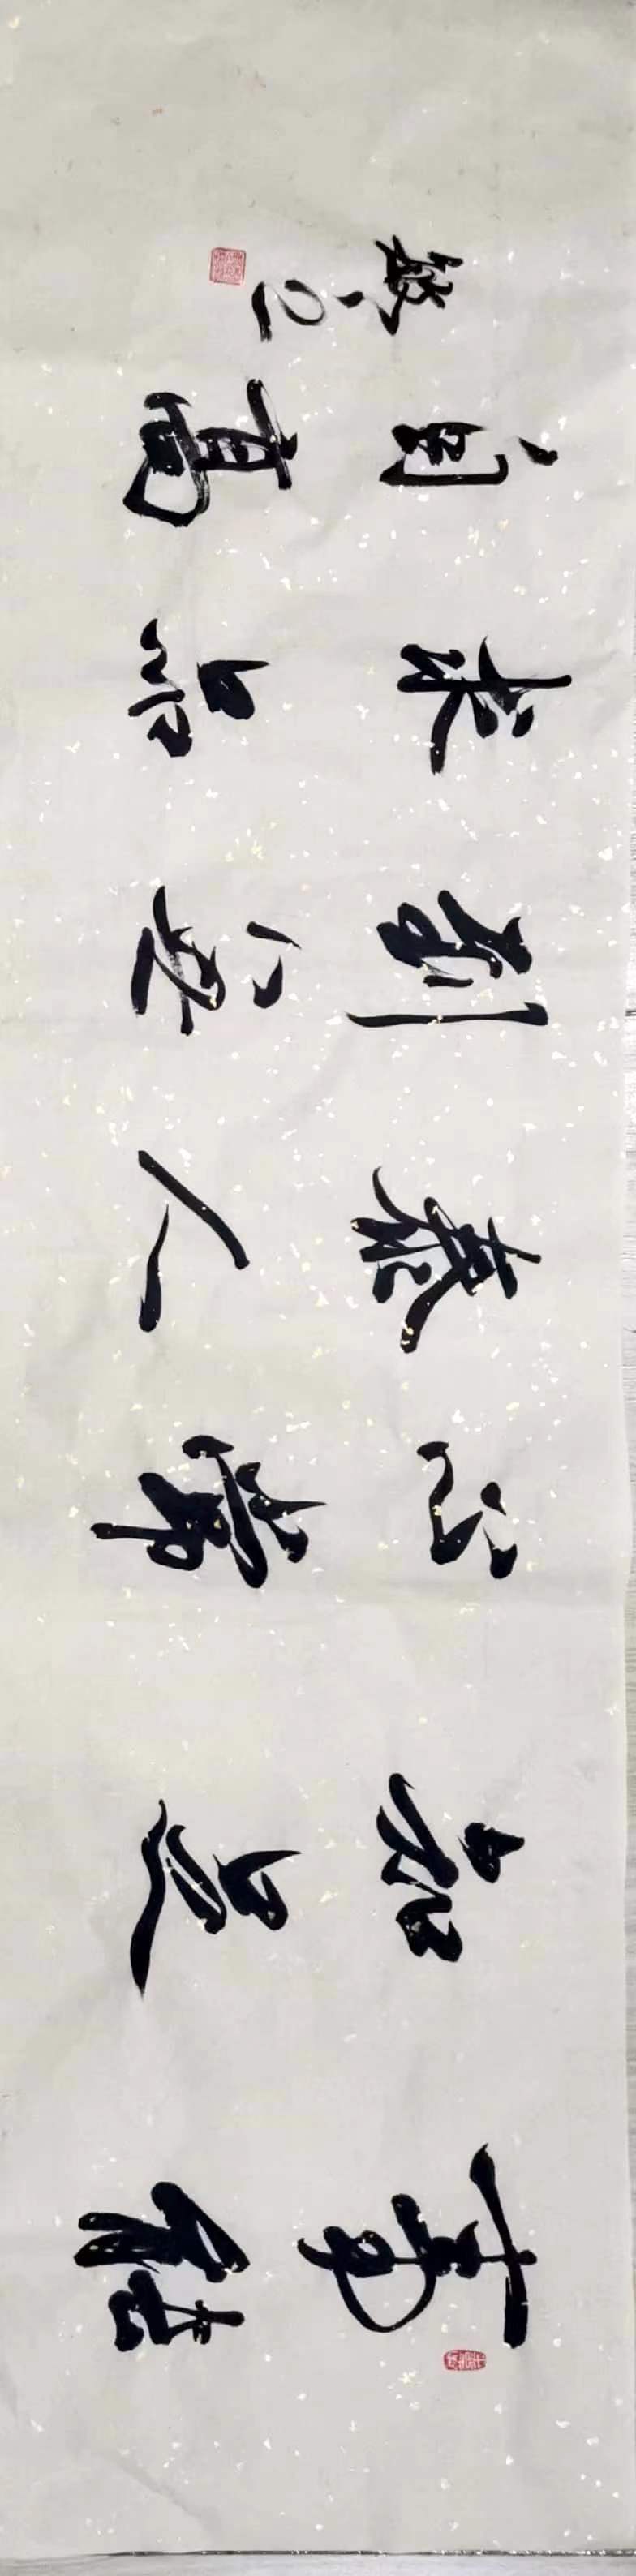 事能
知足
心常
泰人
到無
求品
自高